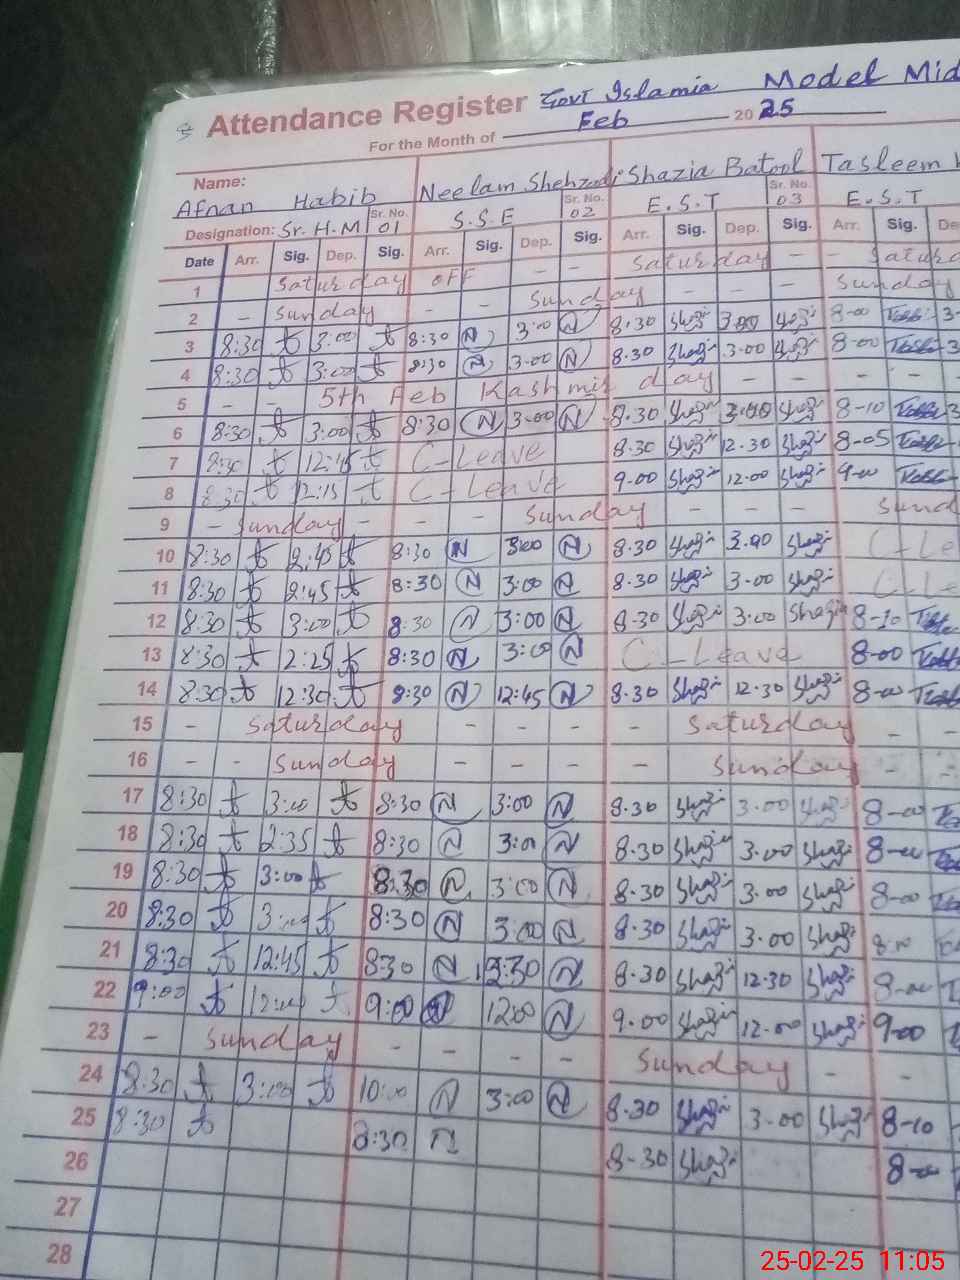 Attendance Register Govt Islamia Model Mid
For the Month of Feb 2025
Name: Afnan Habib Neelam Shehzadi Shazia Batool Tasleem
Designation: Sr. H.M Sr. No. 01 S.S.E Sr. No. 02 E.S.T Sr. No. 03 E.S.T
Date Arr. Sig. Dep. Sig. Arr. Sig. Dep. Sig. Arr. Sig. Dep. Sig. Arr. Sig. De
1 Saturday off - - Saturday - - Saturd
2 - Sunday - - Sunday - - - Sunday
3 8:30 3:00 8:30 N 3:00 N 8.30 Shazi 3.00 Shazi 8-00 3-
4 8:30 3:00 8:30 N 3.00 N 8.30 Shazi 3.00 Shazi 8-00 3
5 - - 5th Feb Kashmir day - - - - -
6 8:30 3:00 8:30 N 3:00 N 8.30 Shazi 3.00 Shazi 8-10 3
7 8:30 12:15 C-Leave 8.30 Shazi 12.30 Shazi 8-05
8 8:30 12:15 C-Leave 9.00 Shazi 12.00 Shazi 9-00
9 - Sunday - - - Sunday - - - Sund
10 8:30 2:45 8:30 N 3:00 N 8.30 Shazi 3.00 Shazi C-Le
11 8:30 2:45 8:30 N 3:00 N 8.30 Shazi 3.00 Shazi C-Le
12 8:30 3:00 8:30 N 3:00 N 8.30 Shazi 3.00 Shazi 8-10
13 8:30 2:25 8:30 N 3:00 N C-Leave 8-00
14 8:30 12:30 8:30 N 12:45 N 8.30 Shazi 12.30 Shazi 8-00
15 - Saturday - - - - Saturday - -
16 - - Sunday - - - - Sunday - -
17 8:30 3:00 8:30 N 3:00 N 8.30 Shazi 3.00 Shazi 8-00
18 8:30 2:35 8:30 N 3:00 N 8.30 Shazi 3.00 Shazi 8-00
19 8:30 3:00 8:30 N 3:00 N 8.30 Shazi 3.00 Shazi 8-00
20 8:30 3:00 8:30 N 3:00 N 8.30 Shazi 3.00 Shazi
21 8:30 12:45 8:30 N 12:30 N 8.30 Shazi 12.30 Shazi 8-00
22 9:00 12:00 9:00 N 12:00 N 9.00 Shazi 12.00 Shazi 9-00
23 - Sunday - - - - Sunday - - -
24 8:30 3:00 10:00 N 3:00 N 8.30 Shazi 3.00 Shazi 8-10
25 8:30 8:30 N 8-30 Shazi 8-00
26
27
28
25-02-25 11:05